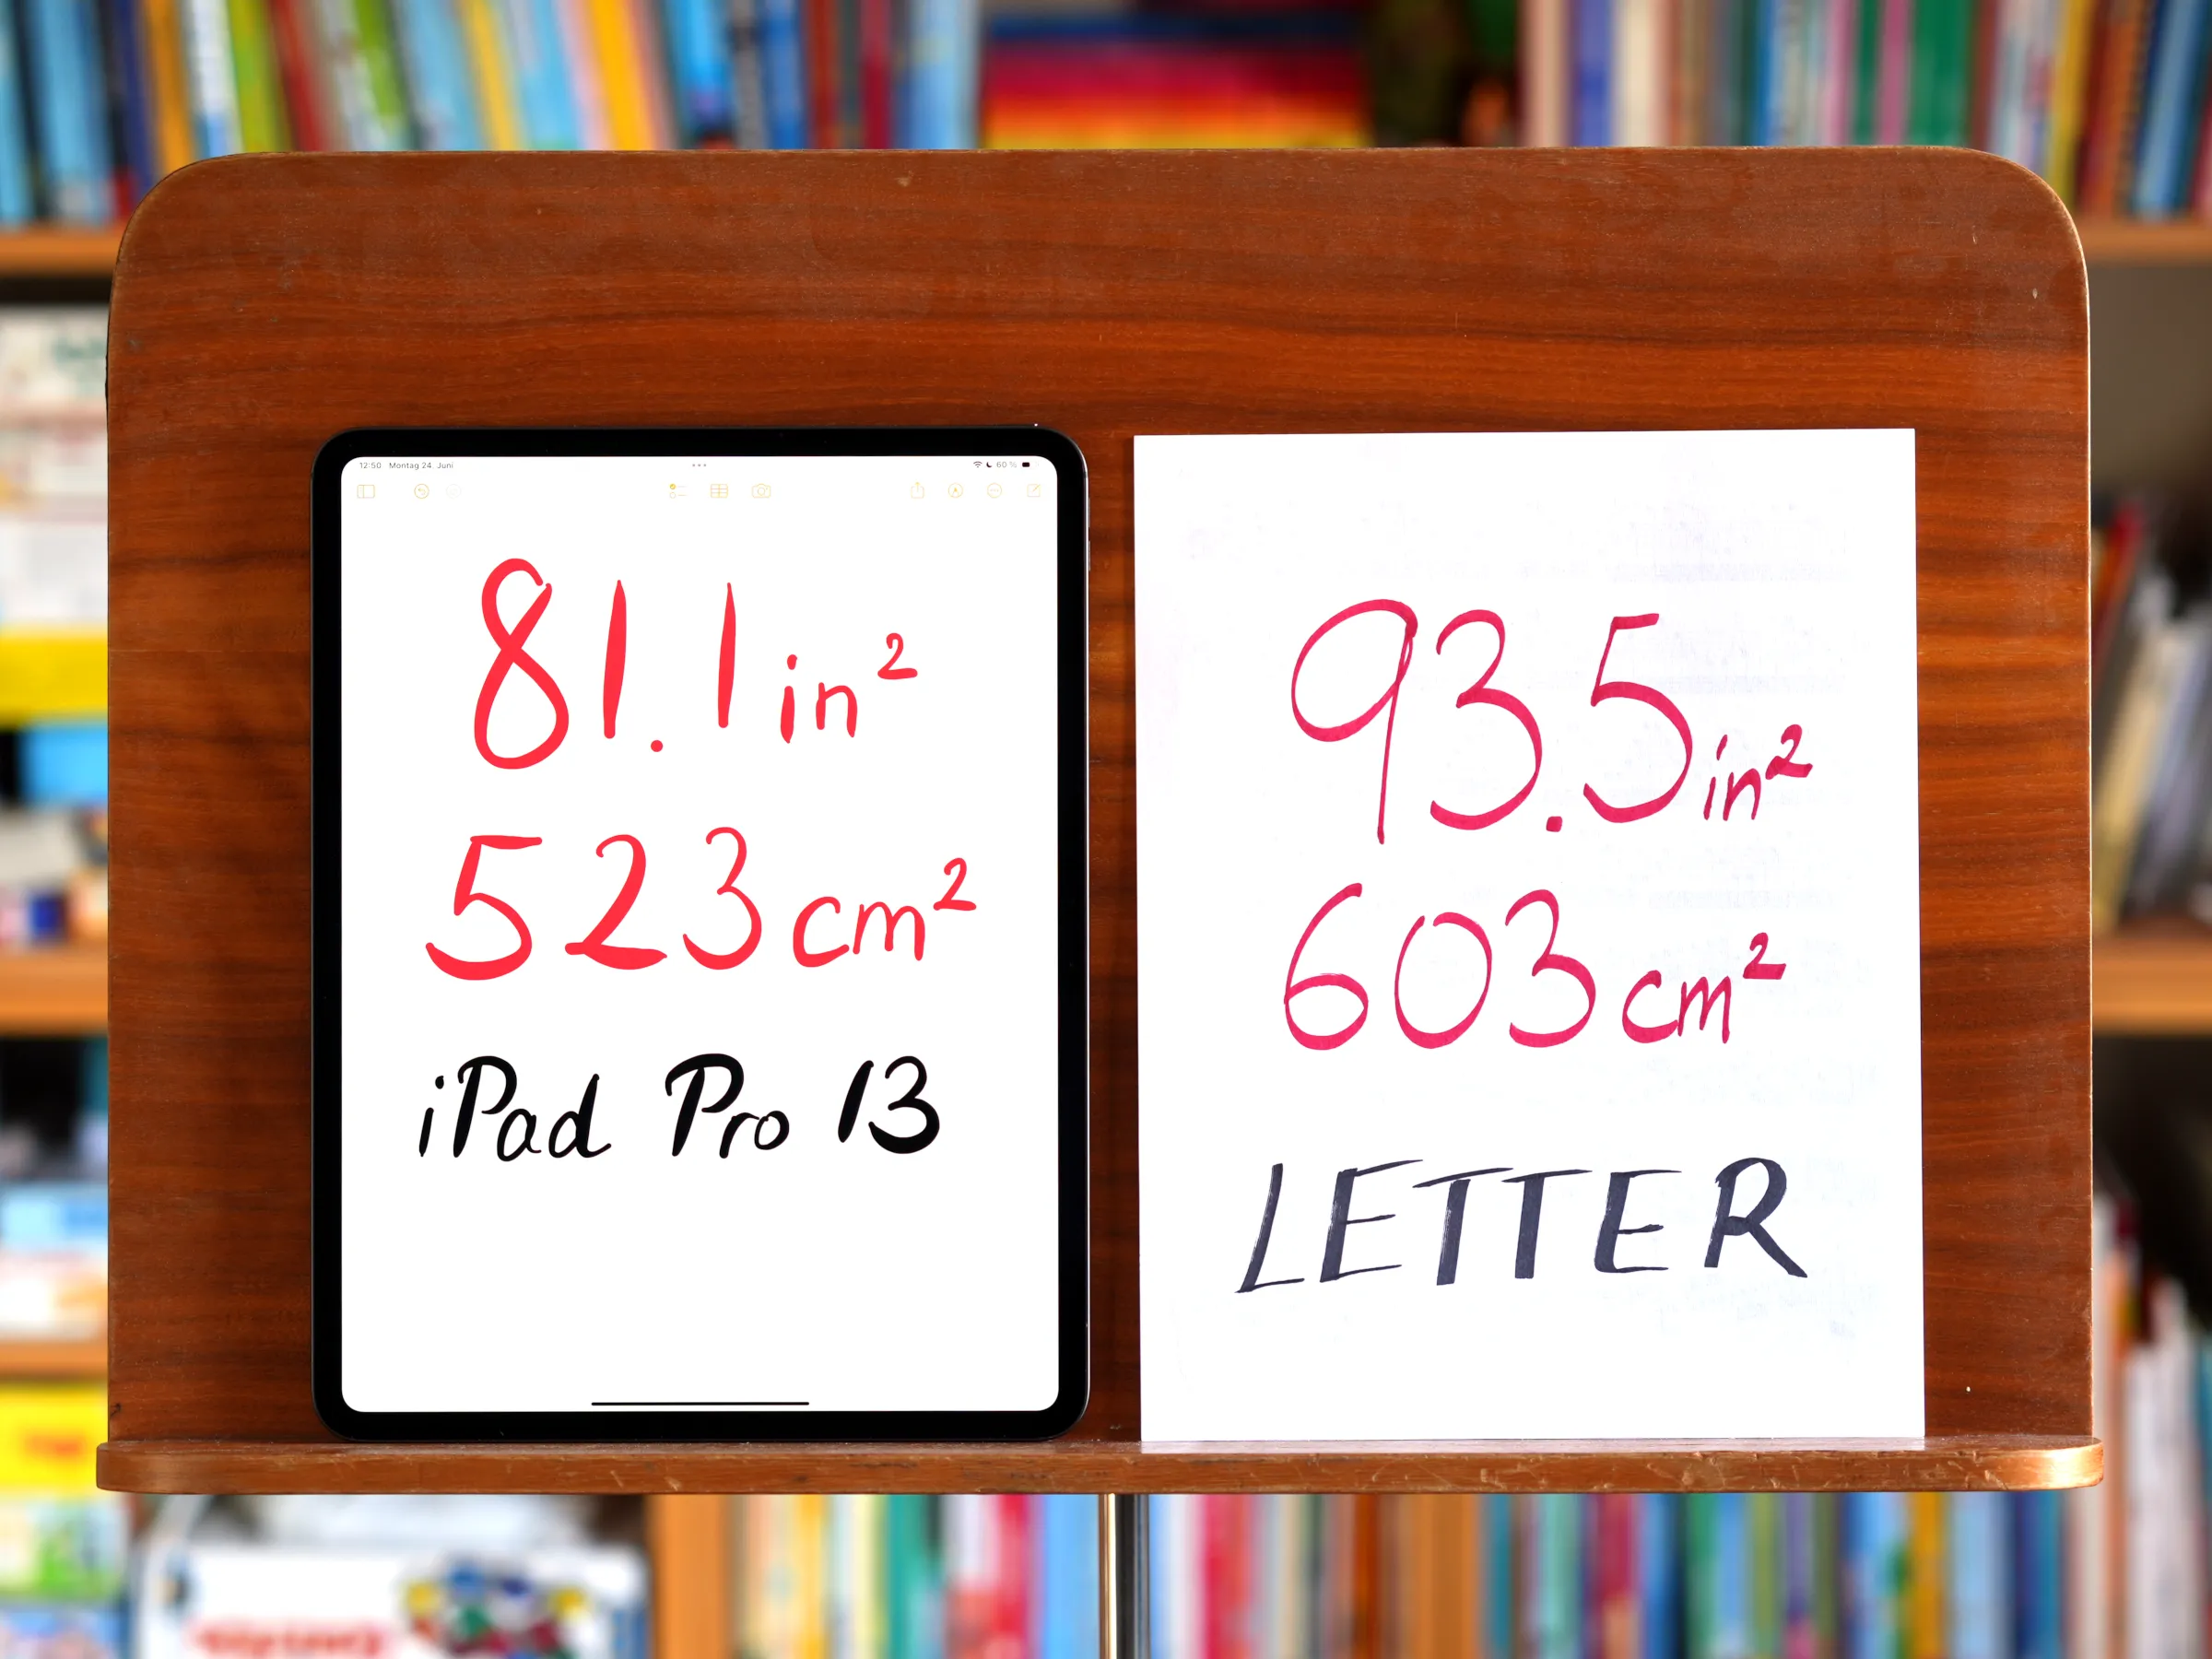 12:50 Montag 24. Juni
60 %
81.1 in²
523 cm²
iPad Pro 13
93.5 in²
603 cm²
LETTER